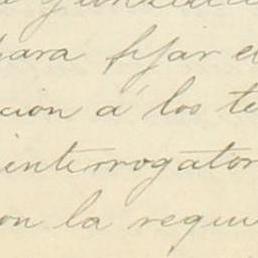 para fijar el
cion á los te
interrogator
on la requi